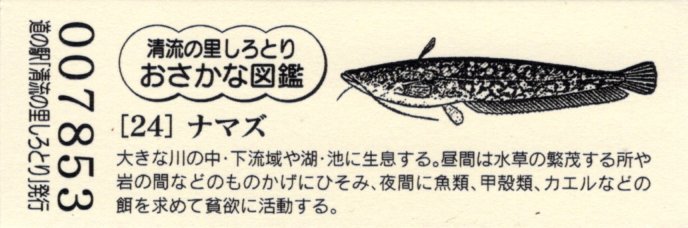 007853
道の駅「清流の里しろとり」発行
清流の里しろとり
おさかな図鑑
[24] ナマズ
大きな川の中・下流域や湖・池に生息する。昼間は水草の繁茂する所や
岩の間などのものかげにひそみ、夜間に魚類、甲殻類、カエルなどの
餌を求めて貧欲に活動する。